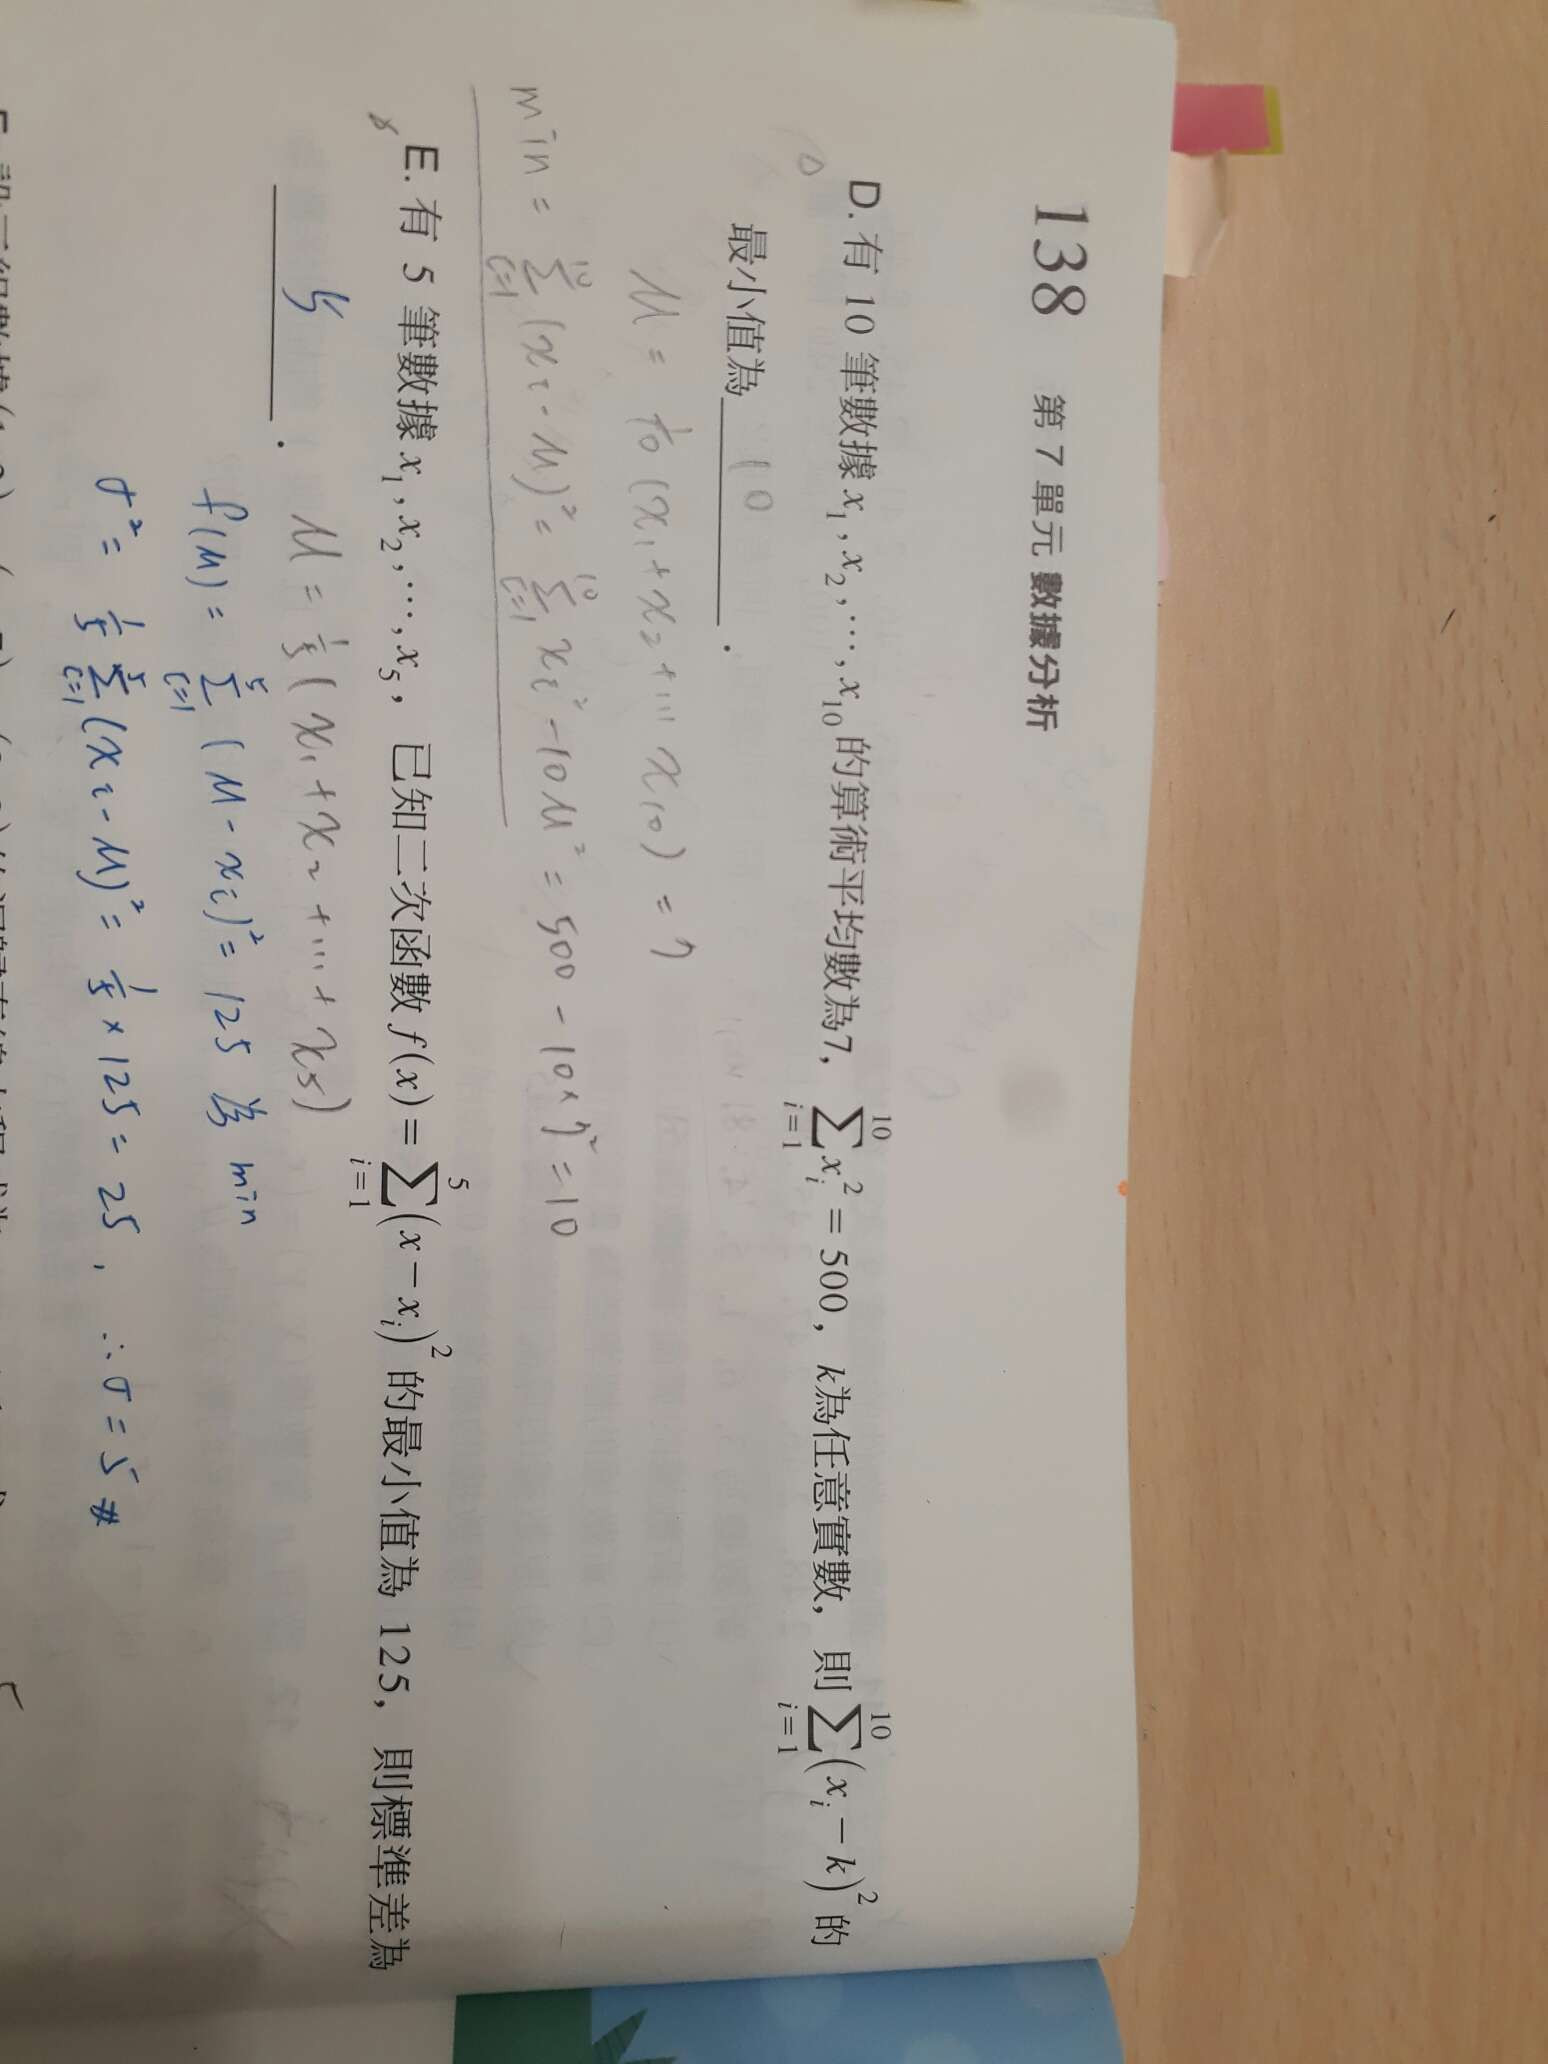 138 第 7 單元 數據分析
D. 有 10 筆數據 x₁, x₂, ⋯, x₁₀ 的算術平均數為7, ∑_{i=1}^{10} x_i² = 500, k為任意實數, 則 ∑_{i=1}^{10} (x_i − k)² 的
最小值為 10 .
μ = 1/10 (x₁ + x₂ + ... x₁₀) = 7
min = ∑_{i=1}^{10} (x_i - μ)² = ∑_{i=1}^{10} x_i² - 10μ² = 500 - 10×7² = 10
E. 有 5 筆數據 x₁, x₂, ⋯, x₅, 已知二次函數 f(x) = ∑_{i=1}^{5} (x − x_i)² 的最小值為 125, 則標準差為
5 .
μ = 1/5 ( x₁ + x₂ + ... + x₅)
f(μ) = ∑_{i=1}^{5} (μ - x_i)² = 125 為 min
σ² = 1/5 ∑_{i=1}^{5} (x_i - μ)² = 1/5 × 125 = 25 , ∴ σ = 5 #